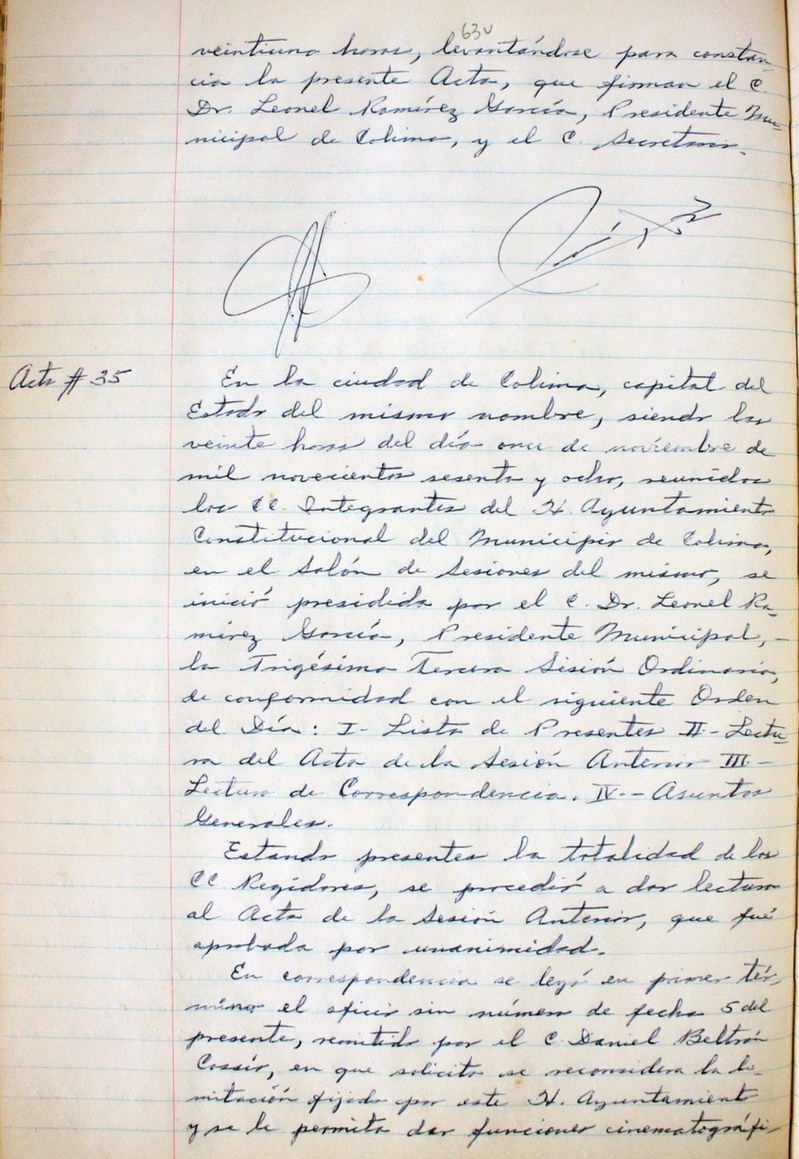 63v
veintiuna horas, levantándose para constan-
cia la presente Acta, que firman el C.
Dr. Leonel Ramírez García, Presidente Mu-
nicipal de Colima, y el C. Secretario.
Acta # 35
En la ciudad de Colima, capital del
Estado del mismo nombre, siendo las
veinte horas del día once de noviembre de
mil novecientos sesenta y ocho, reunidos
los CC. Integrantes del H. Ayuntamiento
Constitucional del Municipio de Colima,
en el Salón de Sesiones del mismo, se
inició presidida por el C. Dr. Leonel Ra-
mírez García, Presidente Municipal, -
la Trigésima Tercera Sesión Ordinaria,
de conformidad con el siguiente Orden
del Día: I- Lista de Presentes II- Lectu-
ra del Acta de la Sesión Anterior III-
Lectura de Correspondencia. IV-- Asuntos
Generales.
Estando presentes la totalidad de los
CC Regidores, se procedió a dar lectura
al Acta de la Sesión Anterior, que fué
aprobada por unanimidad.
En correspondencia se leyó en primer tér-
mino el oficio sin número de fecha 5 del
presente, remitido por el C. Daniel Beltrán
Cossío, en que solicita se reconsidera la li-
mitación fijada por este H. Ayuntamiento
y se le permita dar funciones cinematográfi-